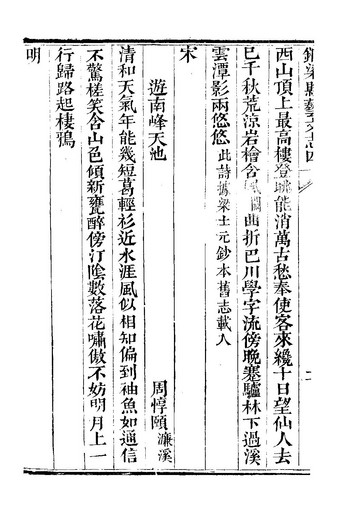 銅梁縣藝文志四
西山頂上最高樓登眺能消萬古愁奉使客來纔十日望仙人去
已千秋荒涼岩檜含風闊曲折巴川學字流傍晚蹇驢林下過溪
雲潭影兩悠悠此詩據梁士元鈔本舊志載入
宋
遊南峰天池 周惇頤濂溪
清和天氣年能幾短葛輕衫近水涯風似相知偏到袖魚如通信
不驚槎笑含山色傾新甕醉傍汀陰數落花嘯傲不妨明月上一
行歸路起棲鴉
明